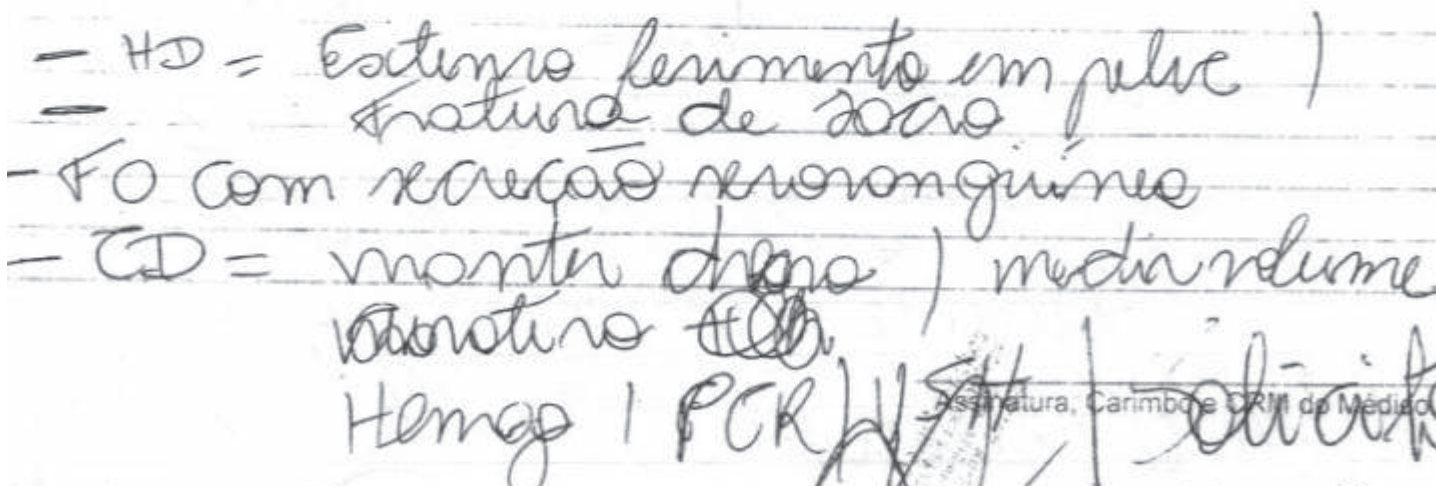 - HD = Extenso ferimento em pelve /
- Fratura de sacro
- FO com secreção serosanguínea
- CD = manter dreno / medir volume
Hemog / PCR / VSH / solicito
Assinatura, Carimbo e CRM do Médico